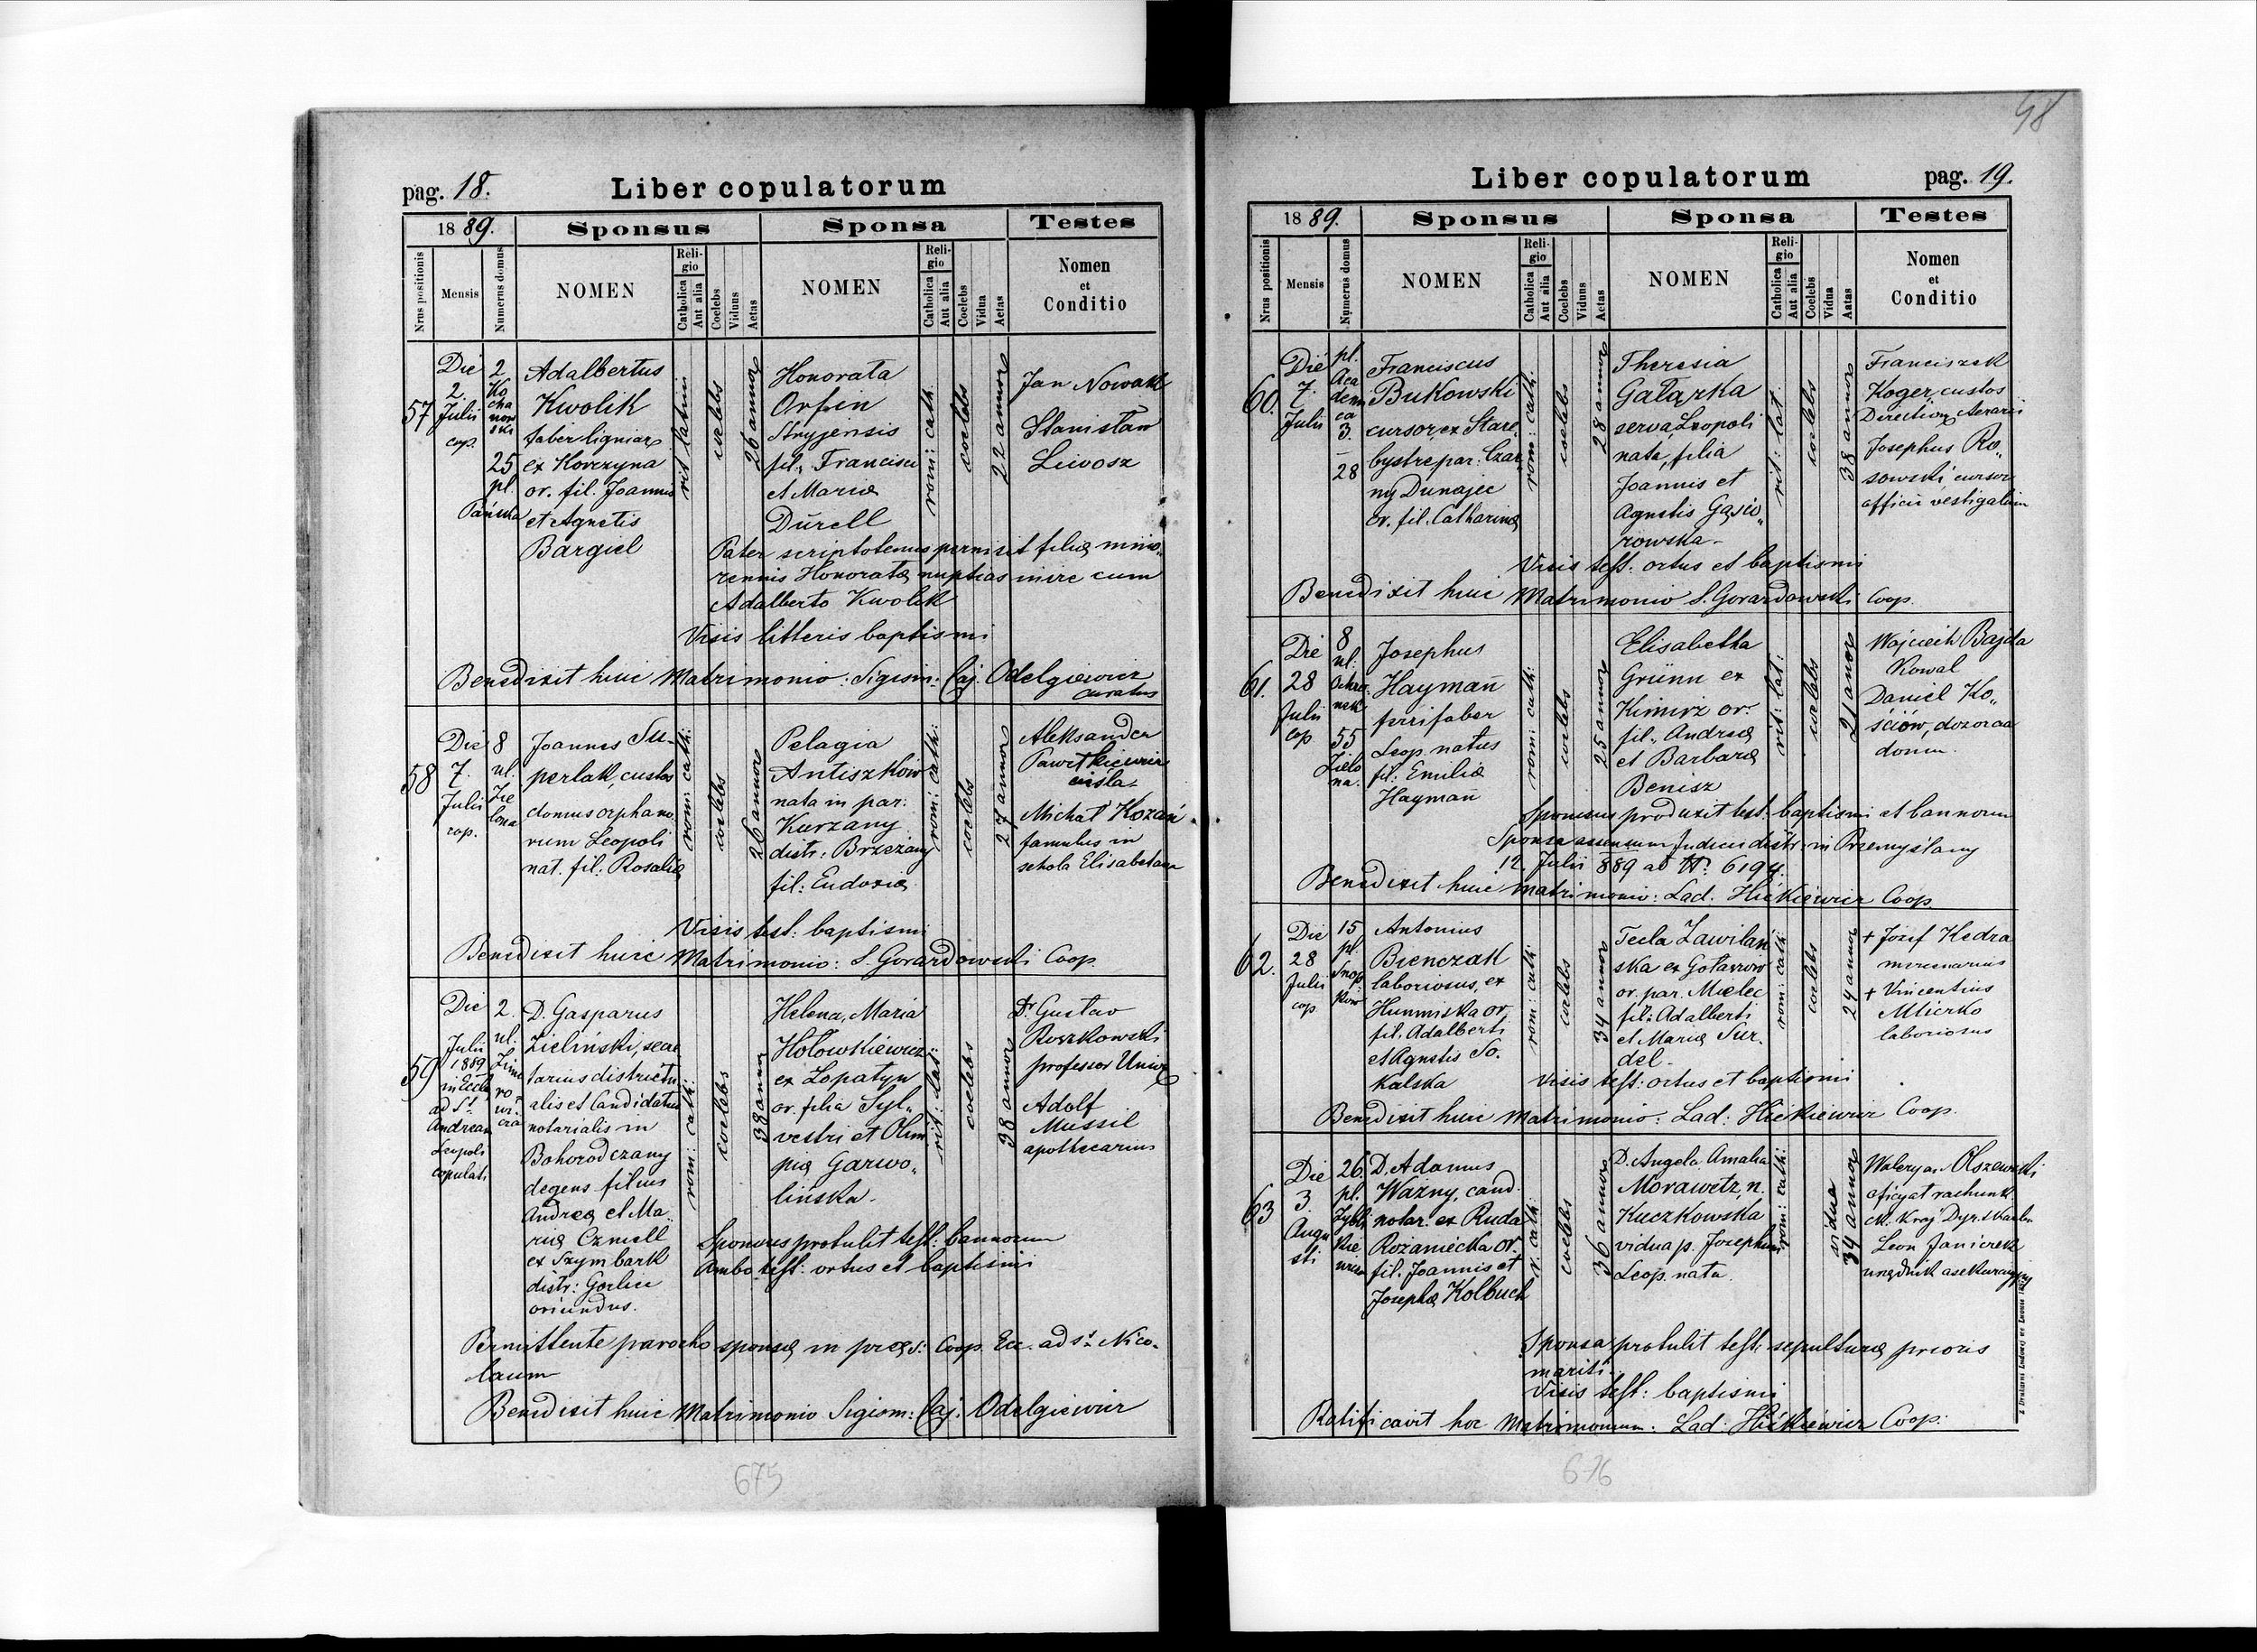 pag. 18.
Liber copulatorum
18 89.
Sponsus
Sponsa
Testes
Nrus positionis
Mensis
Numerus domus
NOMEN
Religio
Catholica
Aut alia
Coelebs
Viduus
Aetas
NOMEN
Religio
Catholica
Aut alia
Coelebs
Vidua
Aetas
Nomen
et
Conditio
57
Die
2.
Julii
cop.
2
Ko
cha
now
ski
25
pl.
Adalbertus
Kwolik
faber lignarę
ex Korczyna
or. fil. Joannis
et Agnetis
Bargiel
rit latini
coelebs
26 annor
Honorata
Orfin
Stryjensis
fil. Francisci
et Mariæ
Dürell
rom: cath
coelebs
22 annor
Jan Nowak
Stanisław
Liwosz
Pater scriptotenus permisit filiæ mino-
rennis Honoratæ nuptias inire cum
Adalberto Kwolik
Visis litteris baptismi
Benedixit huic Matrimonio: Sigism: Caj. Odelgiewicz
curatus
58
Die
7.
Julii
cop.
8
ul.
Zie
lona
Joannes Su-
perlak, custos
domus orphano
rum Leopoli
nat. fil: Rosaliæ
rom: cath:
coelebs
26 annor
Pelagia
Antiszków
nata in par:
Kurzany
distr: Brzeżany
fil: Eudoxiæ
rom: cath:
coelebs
27 annor
Aleksander
cieśla
Michał Kozań
famulus in
schola Elisabetana
Visis test: baptismi
Benedixit huic Matrimonio: S. Gorardowski Coop.
59
Die
Julii
1889
in Eccla
ad St.
Andream
Leopoli
copulati
2.
ul.
Zimo
ro
wi
cza
D. Gasparus
Zieliński, secre
tarius districtu
alis et Candidatus
notarialis in
Bohorodczany
degens filius
Andreæ et Ma
riæ Czmiell
ex Szymbark
distr: Gorlice
oriundus.
rom: cath:
coelebs
38 annor
Helena, Maria
Hołowkiewicz
ex Lopatyn
or. filia Syl-
vestri et Olim
piæ Garwo-
lińska.
rit: lat:
coelebs
38 annor
Dr. Gustav
Roszkowski
professor Univ
Adolf
Mussil
apothecarius
Sponsus protulit test: bannorum
Ambo test: ortus et baptismi
Permittente parocho sponsæ in præs: Coop. Ecc. ad st. Nico-
laum
Benedixit huic Matrimonio Sigism: Caj. Odelgiewicz
675
48
Liber copulatorum
pag. 19.
18 89.
Sponsus
Sponsa
Testes
Nrus positionis
Mensis
Numerus domus
NOMEN
Religio
Catholica
Aut alia
Coelebs
Viduus
Aetas
NOMEN
Religio
Catholica
Aut alia
Coelebs
Vidua
Aetas
Nomen
et
Conditio
60.
Die
7.
Julii
pl.
Aca
demi
ca
3.
28
Franciscus
Bukowski
cursor, ex Stare
bystre par: Czar
ny Dunajec
or. fil. Catharinæ
rom: cath:
coelebs
28 annor
Theresia
Gałązka
serva, Leopoli
nata, filia
Joannis et
Agnetis Gąsio-
rowska.
rit: lat
coelebs
38 annor
Franciszek
Koger, custos
Josephus Ro-
sowski cursor
officii vestigalium
Visis test: ortus et baptismi
Benedixit huic Matrimonio S. Gorardowski Coop.
61.
Die
28
Julii
cop
8
ul:
55
Zielo
na.
Josephus
Haymañ
ferrifaber
Leop. natus
fil: Emiliæ
Haymañ
rom: cath:
coelebs
25 annor
Elisabetha
Grünn ex
Kimirz or:
fil. Andreæ
et Barbaræ
Benisz
rit: lat:
coelebs
21 annor
Wojciech Bajda
Kowal
Daniel Ko-
ściów, dozorca
domu.
Sponsus produxit test: baptismi et bannorum
Sponsa assensum Judicii distr: in Przemyślany
12 Julii 889 ad N: 6194.
Benedixit huic matrimonio: Lad. Hićkiewicz Coop
62.
Die
28
Julii
cop
15
pl
Snop
ków
Antonius
Bienczak
laboriosus, ex
Humniska or.
fil. Adalberti
et Agnetis So-
kalska
rom: cath
coelebs
34 annor
Tecla Zawilań
ska ex
or. par. Mielec
fil: Adalberti
et Mariæ Sur-
del.
rom: cath
coelebs
24 annor
+ Józef Kedra
mercenarius
+ Vincentius
Mierko
laboriosus
Visis test: ortus et baptismi
Benedixit huic Matrimonio: Lad: Hićkiewicz Coop.
63
Die
3.
Augu
sti
26.
pl.
D. Adamus
Ważny, cand.
notar. ex Ruda
Rożaniecka or.
fil. Joannis et
Josephæ Kolbuch
r. cath:
coelebs
36 annor
D. Angela Amalia
Morawetz, n.
Kuczkowska
vidua p. Josephum
Leop. nata.
rom: cath:
vidua
34 annor
Waleryan Olszewski
oficyat rachunk.
Leon Janiczek
urzędnik asekuracyjny
Sponsa protulit test: sepulturæ prioris
mariti.
Visis test: baptismi
Ratificavit hoc Matrimonium: Lad: Hićkiewicz Coop:
676